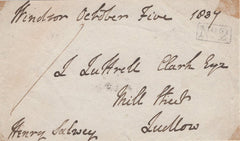 Windsor October Five 1839
J Luttrell Clark Esqe
Mill Street
Ludlow
Henry Salwey